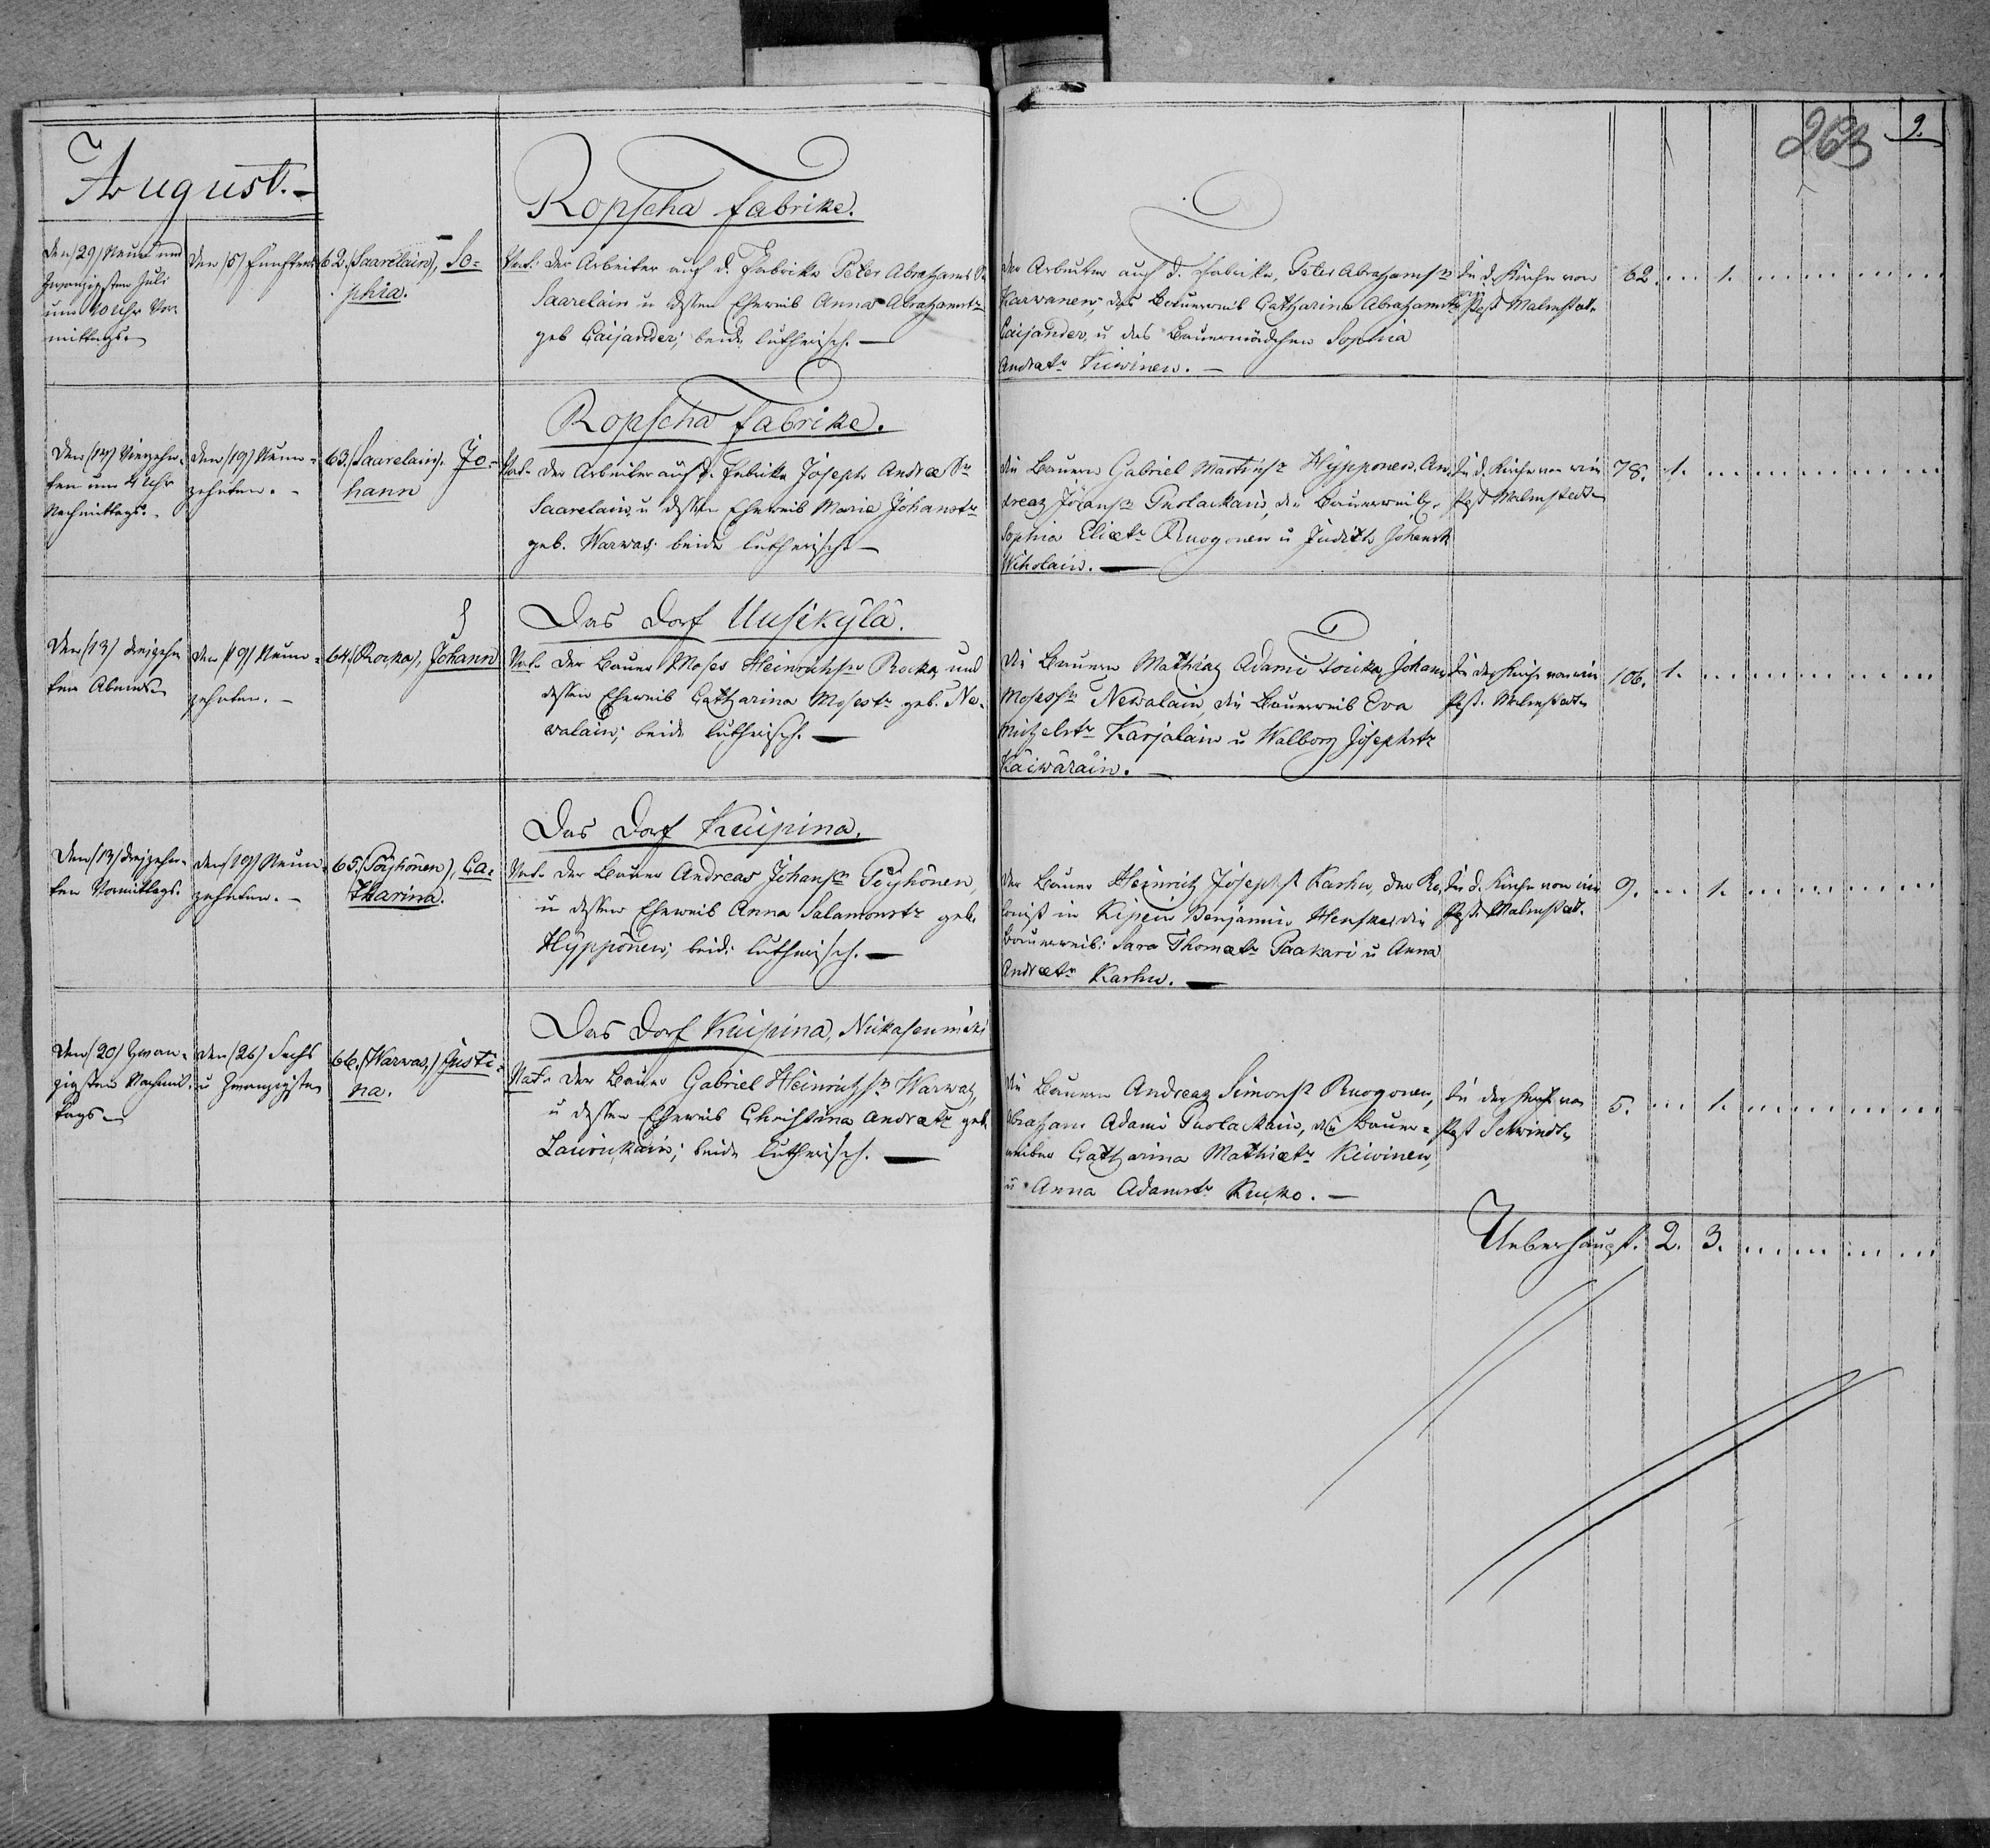 263 9.
August.
Ropscha fabrike.
Den /29/ Neun und
Zwanzigsten Juli
um 10 Uhr Vor-
mittags.
Den /5/ Fünften
62. (Saarelain), So=
phia.
Vat: Der Arbeiter auf d. Fabrike Peter Abrahams Sn
Saarelain u dessen Eheweib Anna Abrahamstr
geb Caijander; beide lutherisch. —
Der Arbeiter auf d. Fabrike, Peter Abrahamsn
Karvanen; das Bauerweib Catharina Abrahamstr
Caijander, u das Bauermädchen Sophia
Andratr Kiwinen. —
In d. Kirche von
Past Malmstat.
62. 1.
Ropscha fabrike.
Den /14/ Vierzehn-
ten um 4 Uhr
Nachmittags.
Den /19/ Neun=
zehnten. -
63. (Saarelain). Jo=
hann
Vat. Der Arbeiter auf d. Fabrike Joseph Andræ Sn
Saarelain, u dessen Eheweib Maria Johanstr
geb. Warwas; beide lutherisch —
Die Bauern Gabriel Martinsn Hÿpponen, An-
dreas Johansn Puolackain, die Bauerweiber
Sophia Eliætr Ruogonen u Judith Johanstr
Wiholain. —
In d. Kirche von
Past Malmstedt
78. 1.
Das Dorf Uusikÿlä.
Den /13/ dreizehn
ten Abends
Den /19/ Neun=
zehnten. -
64. (Rocka), Johann
Vat. Der Bauer Moses Heinrichsn Rocka und
dessen Eheweib Catharina Mosestr geb. Ne-
walain; beide lutherisch. —
Die Bauern Mathias Adami Loucka, Johann
Mosessn Newalain, die Bauerweib Eva
Michelstr Karjalain u Walborg Josephstr
Käiwäräin. —
In der Kirche von
Past. Malmstat
106. 1.
Das Dorf Kuipina.
Den /13/ dreizehn-
ten Vormittags.
Den /19/ Neun=
zehnten. -
65. (Pöyhönen), Ca-
tharina.
Vat. Der Bauer Andreas Johansn Pöyhönen,
u dessen Eheweib Anna Salamonstr geb.
Hÿppönen; beide lutherisch. —
Der Bauer Heinrich Josephs Karhu, der Ko-
lonist in Kipein Benjamin Henske, die
Bauerweib: Sara Thomætr Paakari u Anna
Andrætr Karhu. —
In d. Kirche von
Past. Malmstat.
9. 1.
Das Dorf Kuipina, Nickasenmäki
Den /20/ Zwan-
zigsten Nachmit-
tags
Den /26/ Sechs
u Zwanzigsten
66. (Warwas,) Justi=
na.
Vat. Der Bauer Gabriel Heinrichsn Warwas,
u dessen Eheweib Christina Andrætr geb.
Laurickain; beide lutherisch. —
Die Bauern Andreas Simonsn Ruogonen,
Abraham Adami Puolackain, die Bauer=
weiber Catharina Mathiætr Kiwinen,
u Anna Adamstr Kucko. —
In der Kirche von
Past Schwindt
5. 1.
Ueberhaupt. 2. 3.